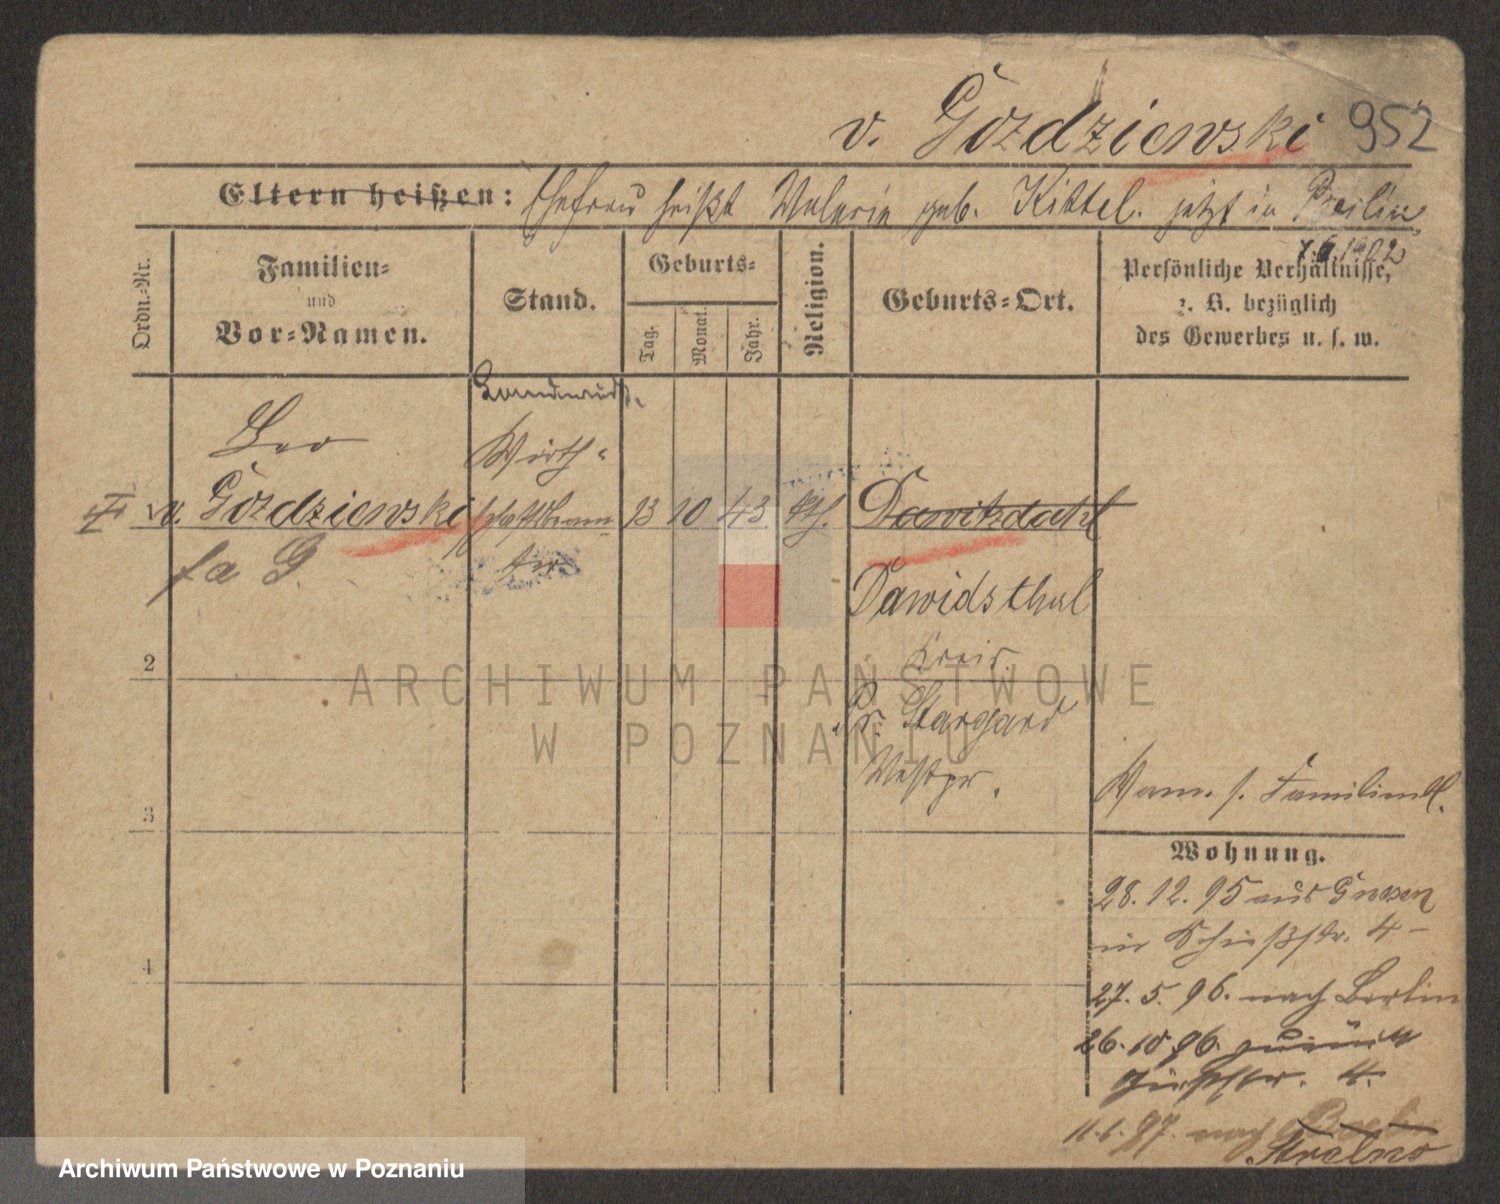 v. Goździewski 952
Eltern heißen: Ehefrau heißt Valerie geb. Kittel. jetzt in Berlin
7.6.1902
Ordn.-Nr.
Familien-
und
Vor-Namen.
Stand.
Geburts-
Tag.
Monat.
Jahr.
Religion.
Geburts-Ort.
Persönliche Verhältnisse,
z. B. bezüglich
des Gewerbes u. s. w.
Landwirth.
Leo
Wirth-
v. Goździewski schaftbeam- 13 10 43 kth. Dawitzdahl
ter
fa G
Dawidsthal
Kreis
2
Pr. Stargard
Westpr.
Vam. s. Familienbl.
3
Wohnung.
28. 12. 95 aus Gnesen
Schießstr. 4
4
27. 5. 96. nach Berlin
26. 10 96. zurück
Schießstr. 4.
11.6. 97. nach Berlin
Strelno
ARCHIWUM PAŃSTWOWE
W POZNANIU
Archiwum Państwowe w Poznaniu